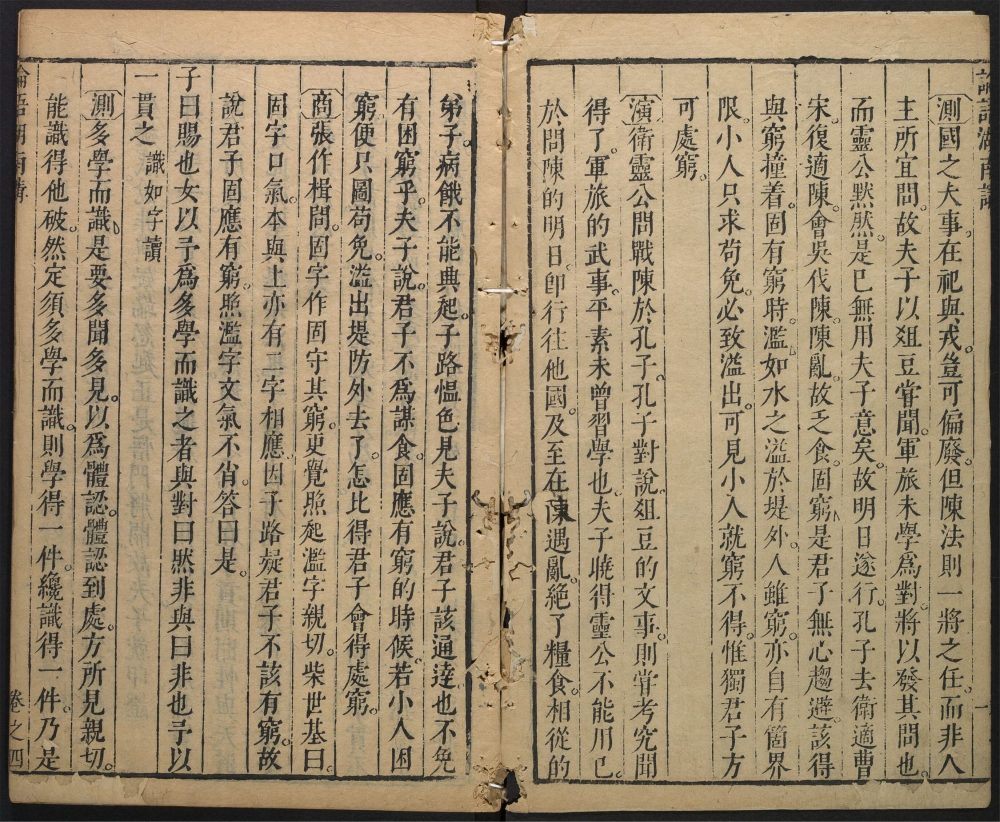 論語湖南講
測國之大事在祀與戎。豈可偏廢。但陳法則一將之任。而非人
主所宜問。故夫子以俎豆甞聞。軍旅未學爲對。將以發其問也。
而靈公默然。是已無用夫子意矣。故明日遂行。孔子去衛適曹
宋。復適陳。會吳伐陳。陳亂。故乏食。固窮。是君子無心趨避。該得
與窮撞着。固有窮時。濫如水之溢於堤外。人雖窮。亦自有箇界
限。小人只求苟免。必致溢出。可見小人就窮不得。惟獨君子方
可處窮。
演衛靈公問戰陳於孔子。孔子對說。俎豆的文事。則甞考究聞
得了。軍旅的武事。平素未曾習學也。夫子曉得靈公不能用巳。
於問陳的明日。卽行往他國。及至在陳遇亂。絕了糧食。相從的
一
弟子。病餓不能興起。子路慍色見夫子說。君子該通達也。不免
有困窮乎。夫子說。君子不爲謀食。固應有窮的時候。若小人困
窮。便只圖苟免。濫出堤防外去了。怎比得君子會得處窮。
商張作楫問。固字作固守其窮。更覺照起濫字親切。柴世基曰。
固字口氣。本與上亦有二字相應。因子路疑君子不該有窮。故
說君子固應有窮。照濫字文氣不肖。答曰是。
子曰賜也女以予爲多學而識之者與對曰然非與曰非也予以
一貫之 識如字讀
測多學而識。是要多聞多見。以爲體認。體認到處。方所見親切。
能識得他破。然定須多學而識。則學得一件。纔識得一件。乃是
論語湖南講
卷之四